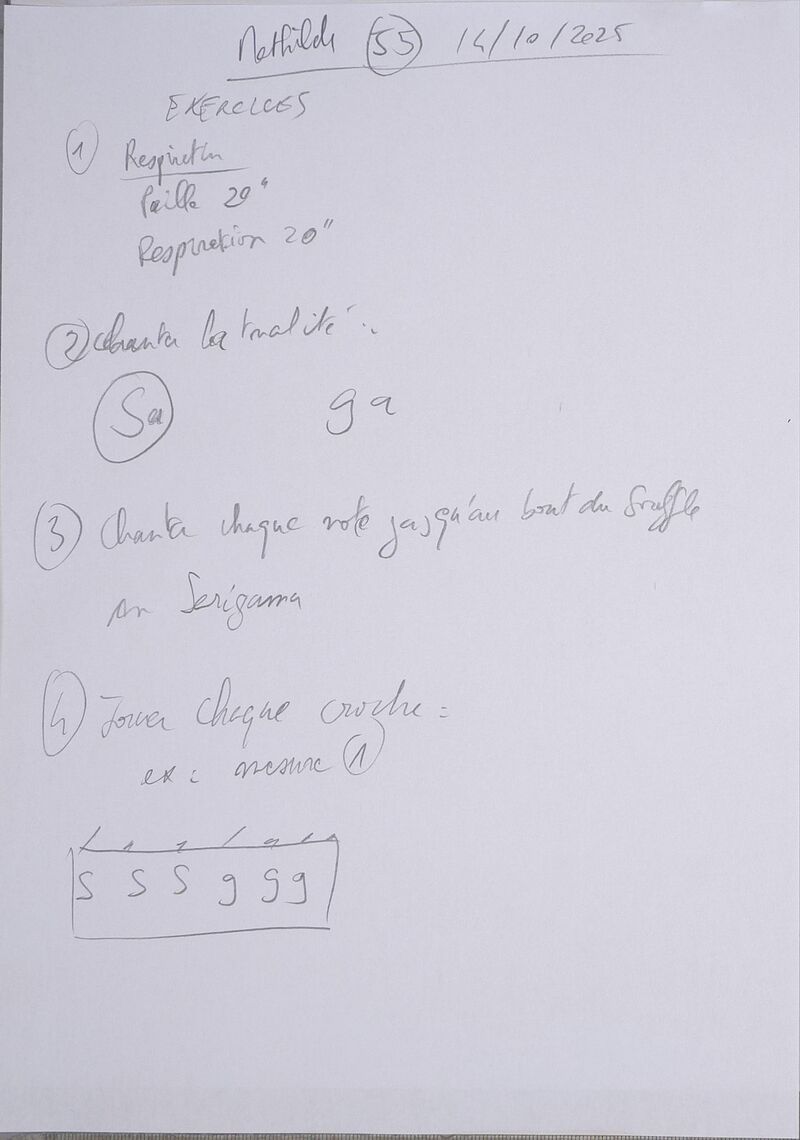 Mathilde 55 14/10/2025
EXERCICES
1 Respiration
Paille 20"
Respiration 20"
2 Chanter la tonalité :
Sa ga
3 Chanter chaque note jusqu'au bout du souffle
en Sarigama
4 Jouer chaque croche :
ex : mesure 1
S S S g g g